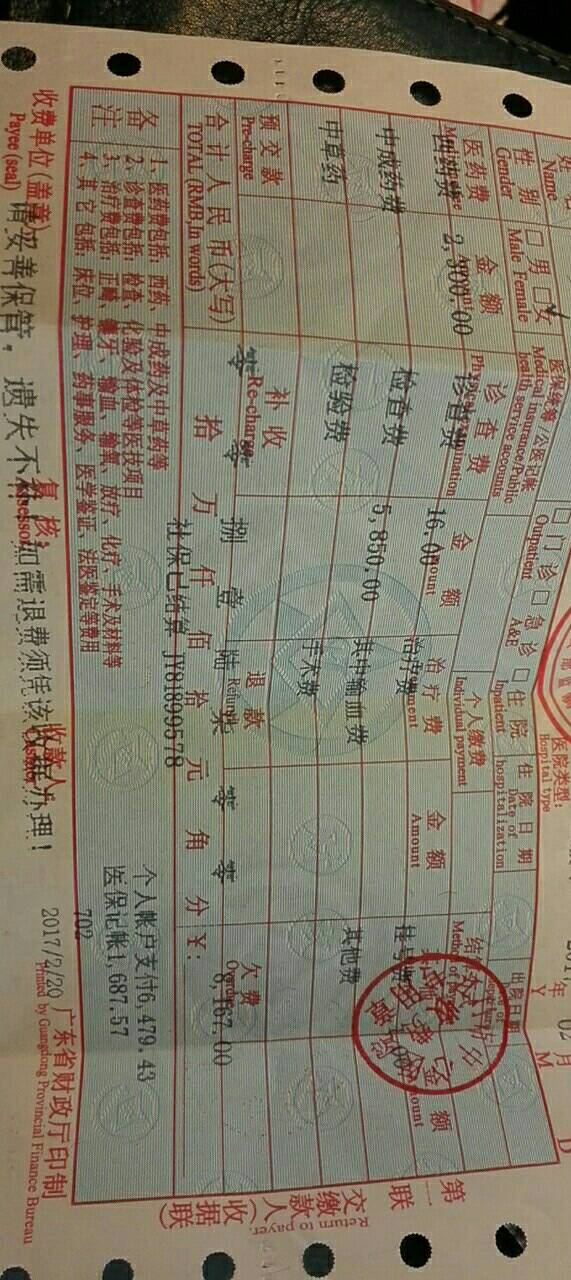 医院类型:
Hospital type
2017年 02月
Y M D
Name
性别 □男 □女
Gender Male Female
医保统筹/公医记帐
Medical insurance/Public
health service accounts
□门诊 □急诊 □住院
Outpatient A&E Inpatient
个人缴费
Individual payment
住院日期
Date of
hospitalization
出院日期
医药费 金额 诊查费 金额 治疗费 金额
Amount Amount Amount
西药费 2,300.00 诊查费 16.00 治疗费 挂号费
中成药费 检查费 5,850.00 其中输血费 其他费
中草药 检验费 手术费
预交款 补收 退款 欠费
Pre-charge Re-charge Refund
合计人民币(大写) 零拾零万捌仟壹佰陆拾柒元零角零分 ¥: 8,167.00
TOTAL (RMB)In words)
社保已结算 JY81899578
备注
1、医药费包括：西药、中成药及中草药等
2、诊查费包括：检查、化验及体检等医技项目
3、治疗费包括：正畸、镶牙、输血、输氧、放疗、化疗、手术及材料等
4、其它包括：床位、护理、药事服务、医学鉴证、法医鉴定等费用
个人帐户支付6,479.43
医保记帐1,687.57
702
收费单位(盖章)
Payee (seal)
复核:
收款人
2017/2/20
广东省财政厅印制
Printed by Guangdong Provincial Finance Bureau
请妥善保管，遗失不补！如需退费须凭该收据办理！
第一联
交款人
收据联
Return to payer.